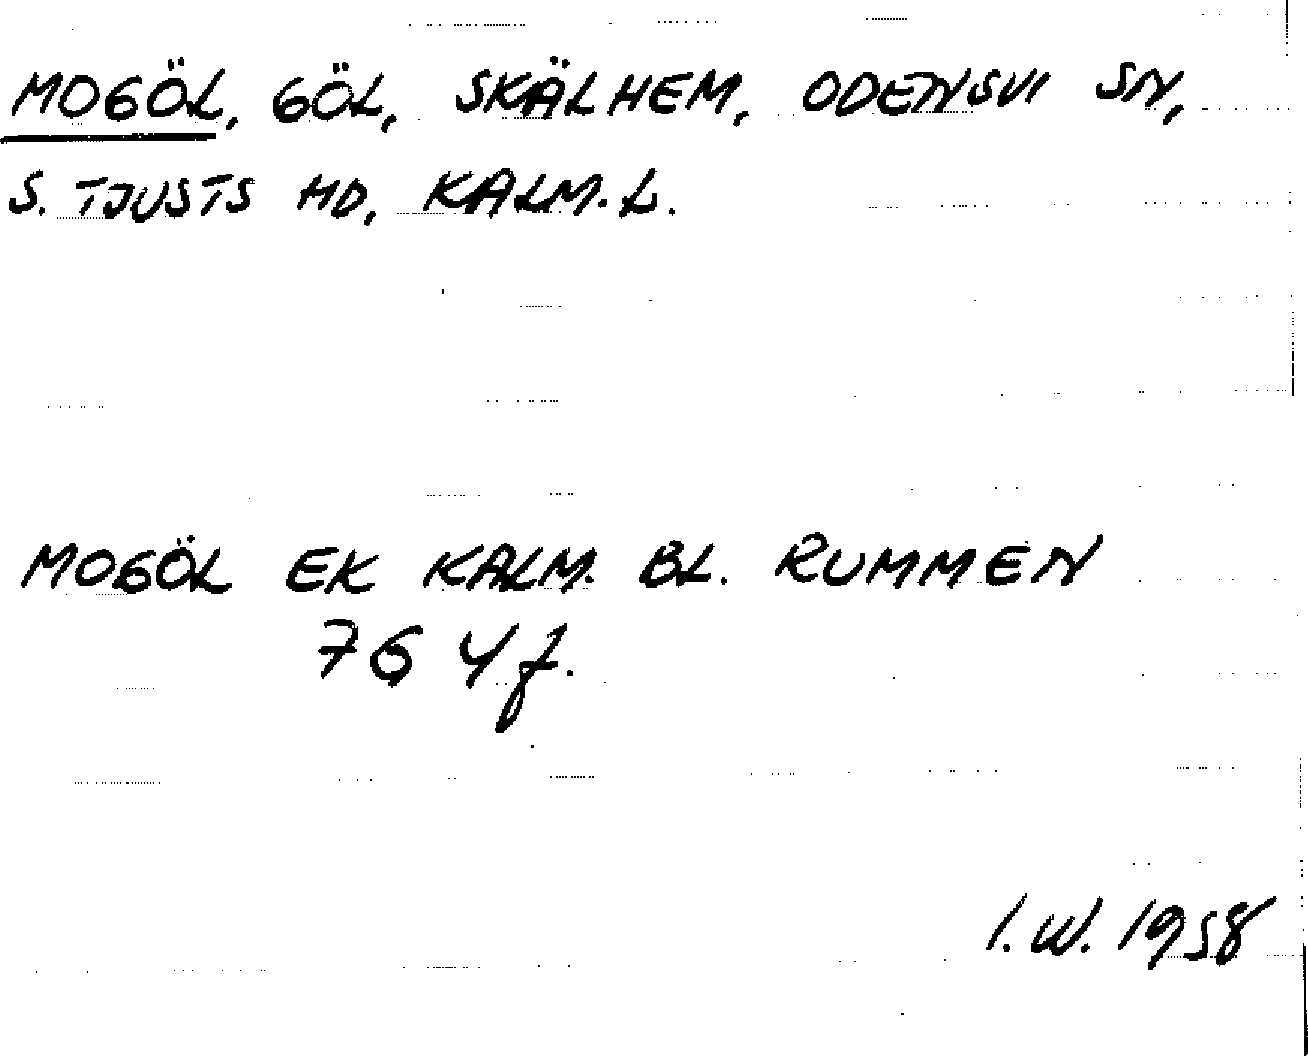 MOGÖL, GÖL, SKÄLHEM, ODENSVI SN,
S. TJUSTS HD, KALM. L.
MOGÖL EK KALM. BL. RUMMEN
76 Y f.
I. W. 1958